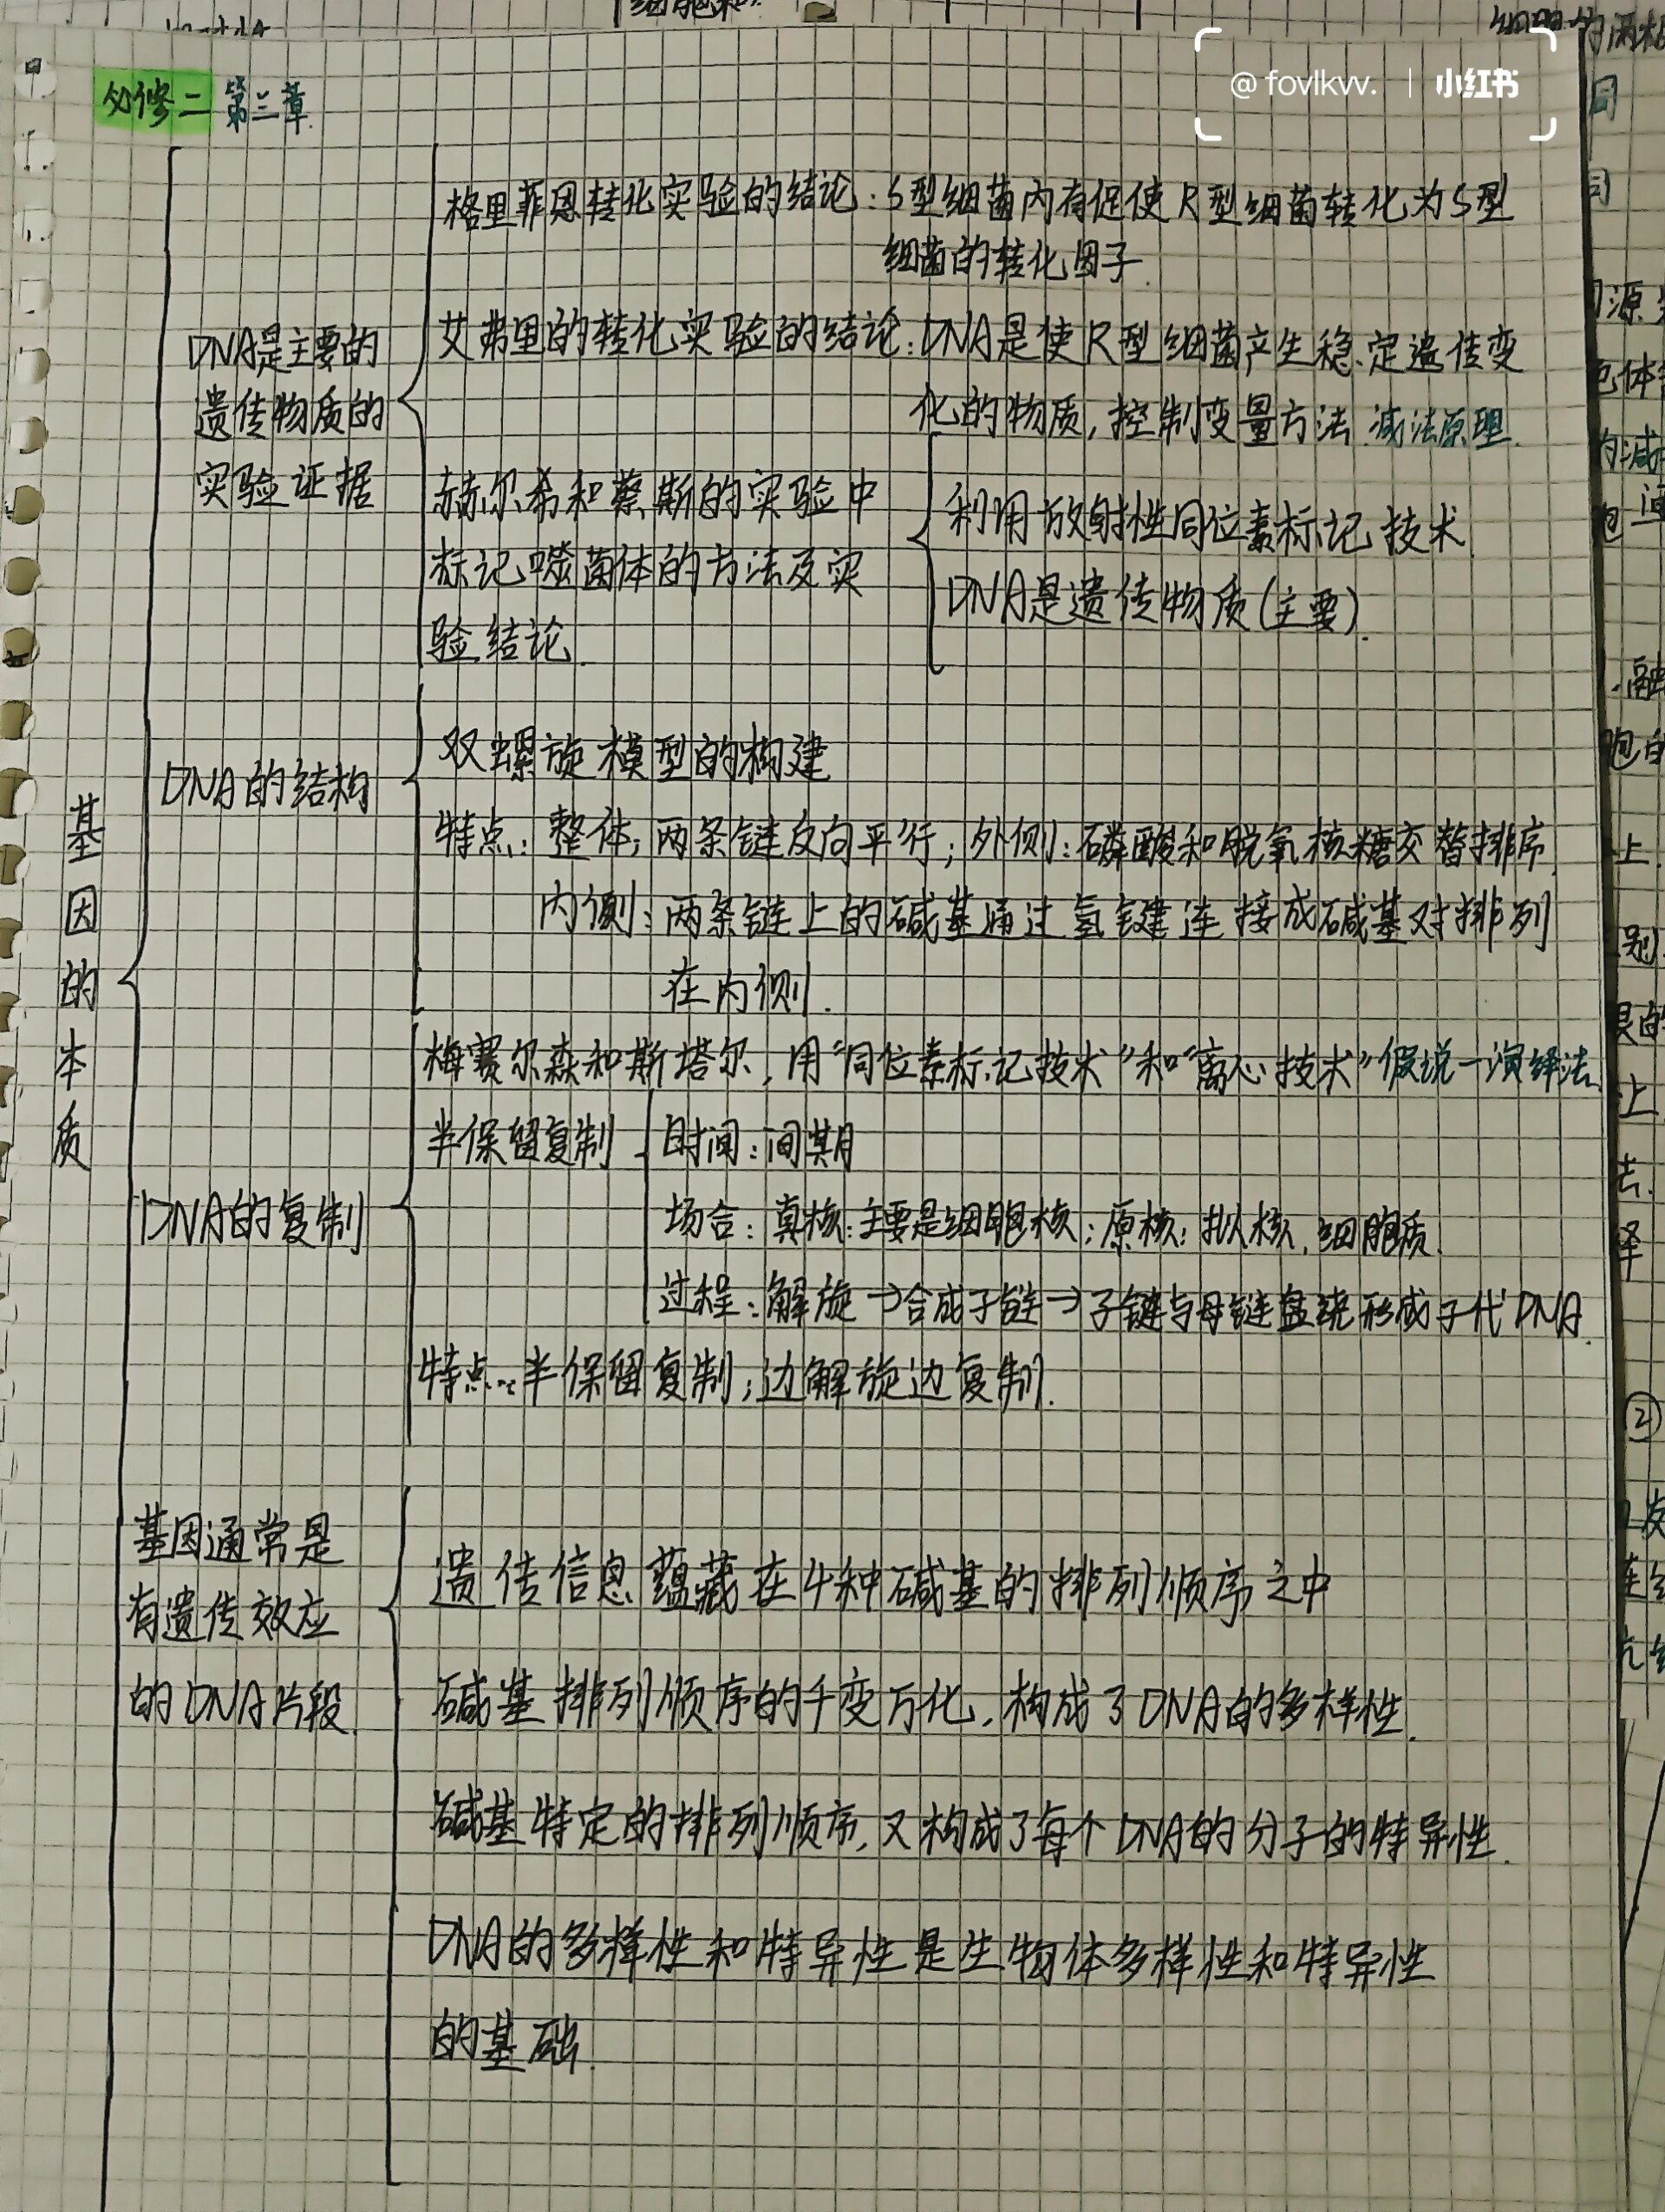 @ fovlkvv. | 小红书
必修二 第三章
基因的本质
DNA是主要的
遗传物质的
实验证据
格里菲思转化实验的结论：S型细菌内有促使R型细菌转化为S型
细菌的转化因子.
艾弗里的转化实验的结论：DNA是使R型细菌产生稳定遗传变
化的物质，控制变量方法 减法原理.
赫尔希和蔡斯的实验中
标记噬菌体的方法及实
验结论.
利用放射性同位素标记技术
DNA是遗传物质（主要）.
DNA的结构
双螺旋模型的构建
特点：整体：两条链反向平行；外侧：磷酸和脱氧核糖交替排序
内侧：两条链上的碱基通过氢键连接成碱基对排列
在内侧.
DNA的复制
梅赛尔森和斯塔尔，用“同位素标记技术”和“离心技术”假说一演绎法
半保留复制
时间：间期
场合：真核：主要是细胞核；原核：拟核，细胞质.
过程：解旋→合成子链→子链与母链盘绕形成子代DNA.
特点：半保留复制；边解旋边复制.
基因通常是
有遗传效应
的DNA片段.
遗传信息蕴藏在4种碱基的排列顺序之中
碱基排列顺序的千变万化，构成了DNA的多样性.
碱基特定的排列顺序，又构成了每个DNA的分子的特异性.
DNA的多样性和特异性是生物体多样性和特异性
的基础.